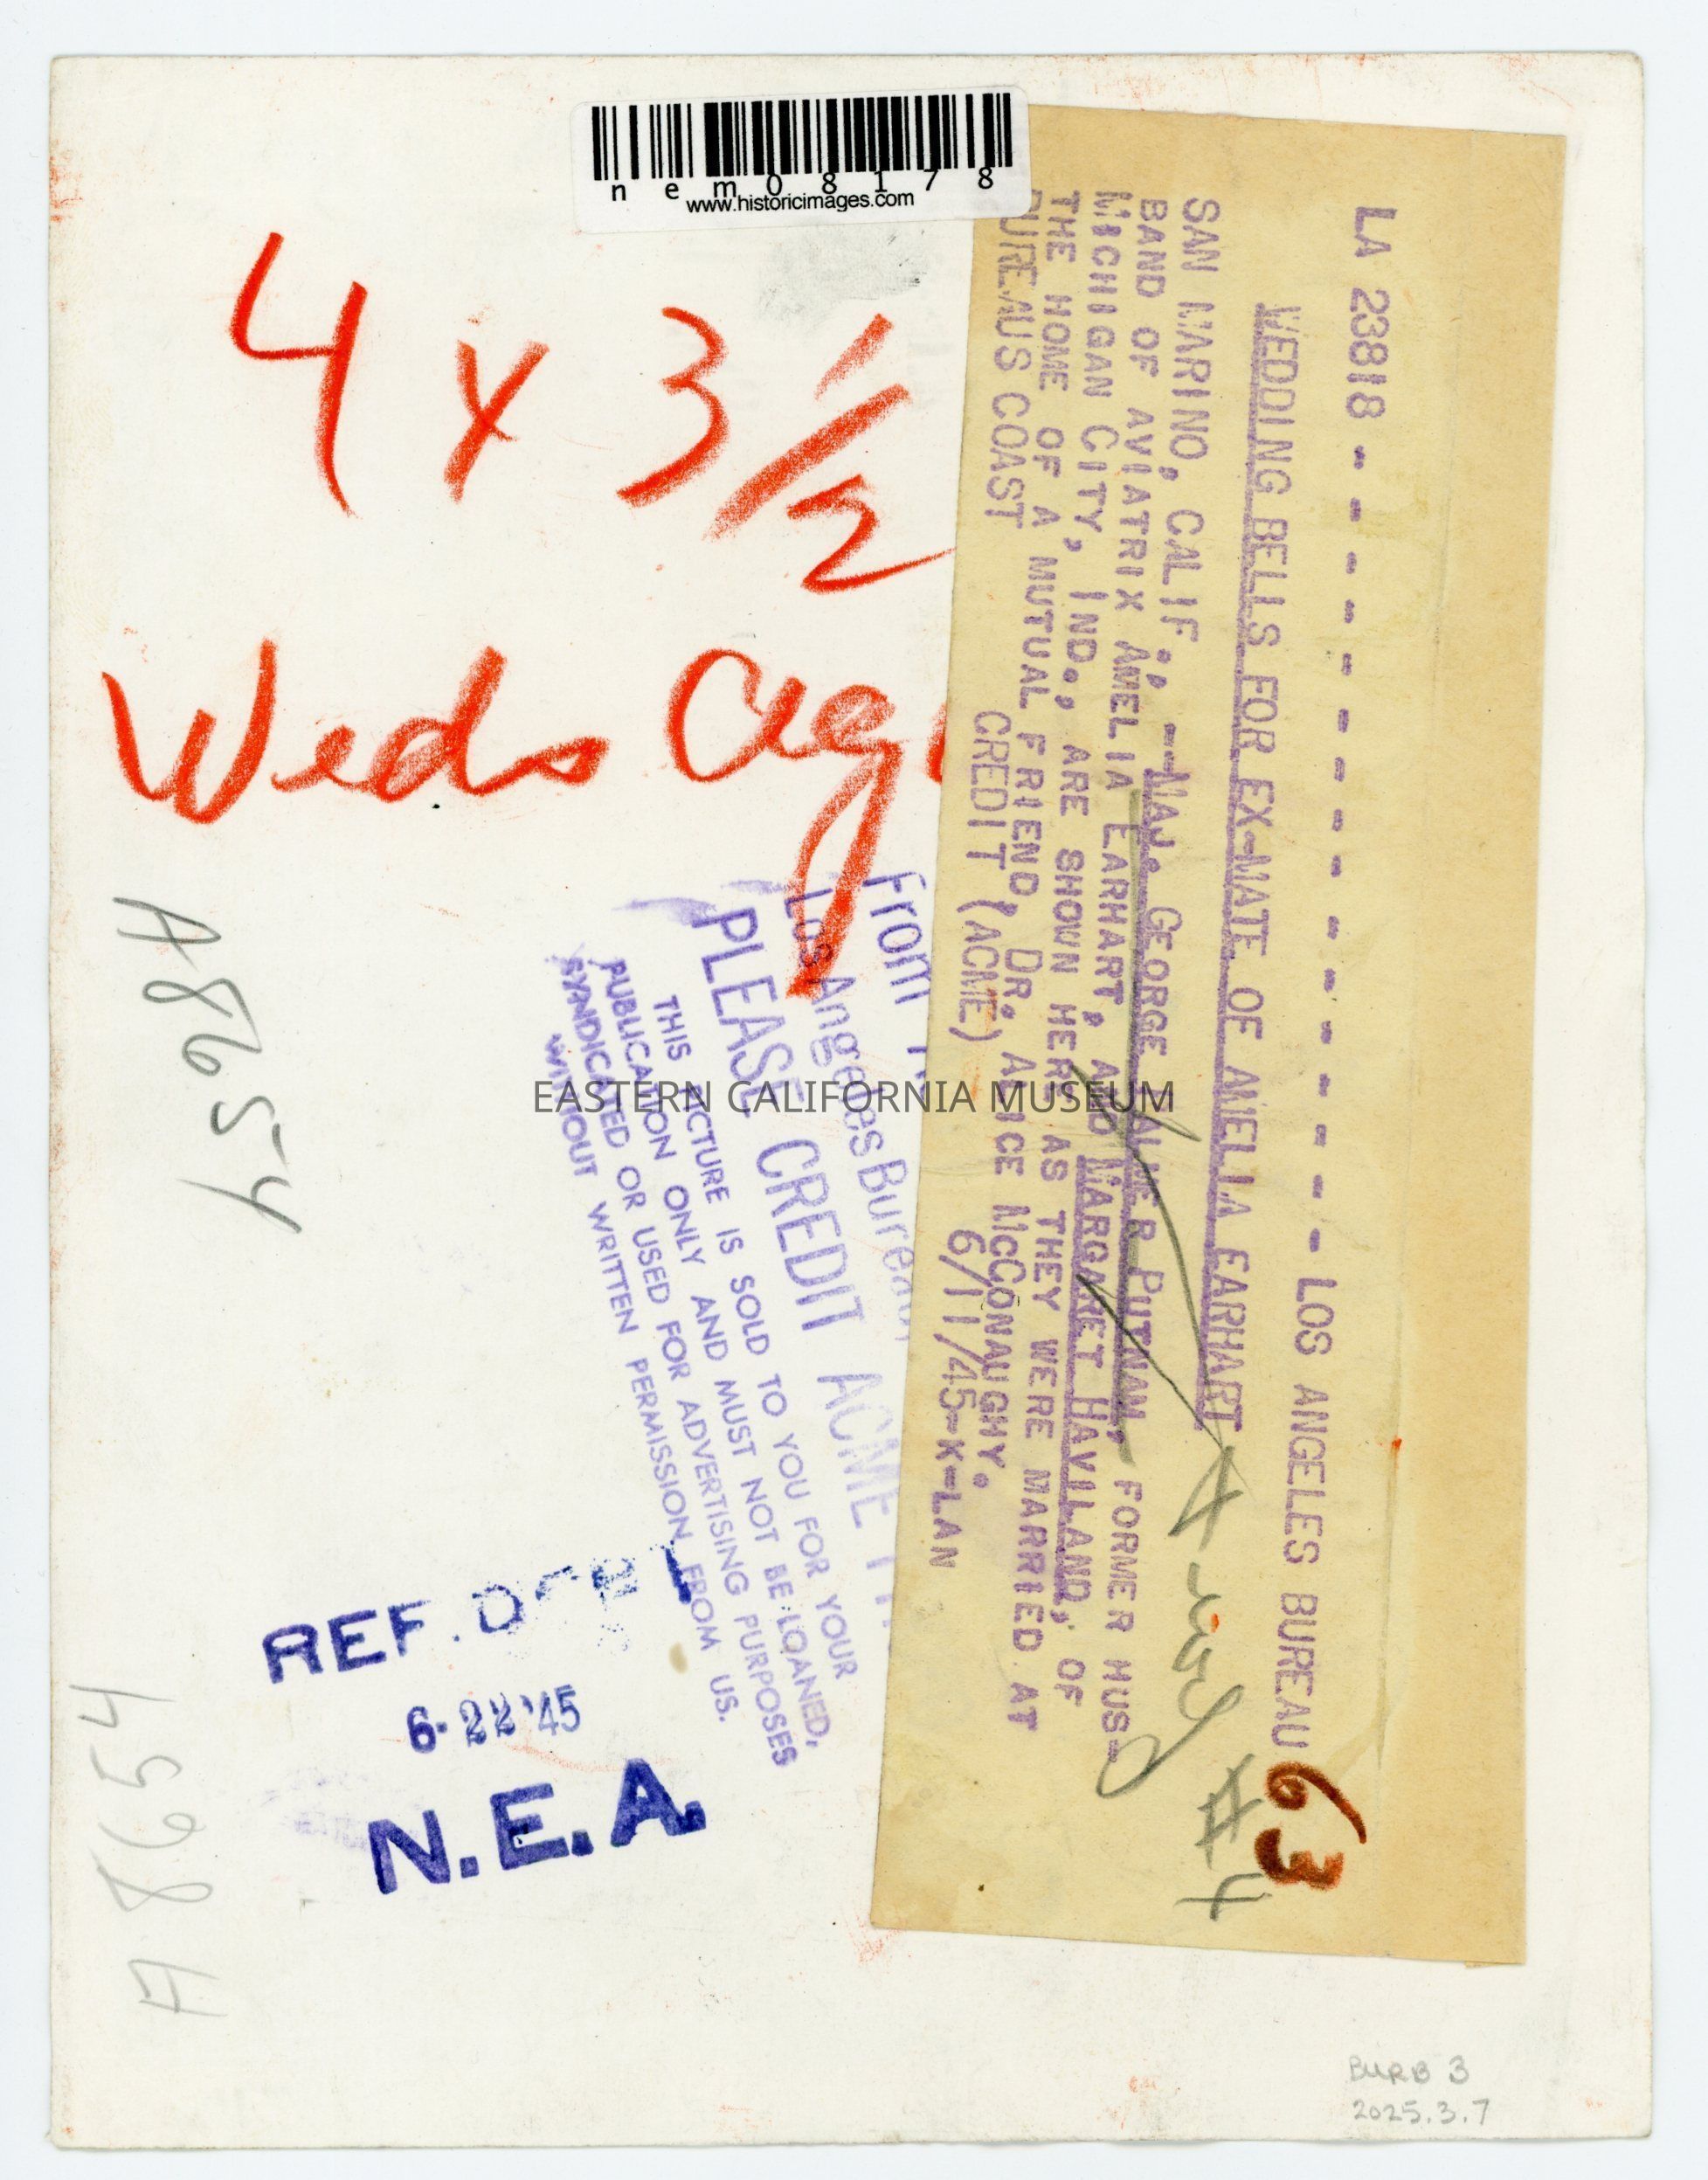 nem08178
www.historicimages.com
4 x 3 1/2
Weds Ag
LA 23818 - - - - - - - - - - - - - - - LOS ANGELES BUREAU
63
WEDDING BELLS FOR EX-MATE OF AMELIA EARHART
SAN MARINO, CALIF.; --MAJ. GEORGE PALMER PUTNAM, FORMER HUS-
BAND OF AVIATRIX AMELIA EARHART, AND MARGARET HAVILAND, OF
MICHIGAN CITY, IND., ARE SHOWN HERE AS THEY WERE MARRIED AT
THE HOME OF A MUTUAL FRIEND, DR. ALICE MCCONAUGHY.
BUREAUS COAST CREDIT (ACME) 6/11/45-K-LAN
#4
From
Los Angeles Bureau
PLEASE CREDIT ACME
THIS PICTURE IS SOLD TO YOU FOR YOUR
PUBLICATION ONLY AND MUST NOT BE LOANED,
SYNDICATED OR USED FOR ADVERTISING PURPOSES
WITHOUT WRITTEN PERMISSION FROM US.
A8654
EASTERN CALIFORNIA MUSEUM
REF. DEPT
6-22'45
N.E.A.
A8654
BURB 3
2025.3.7